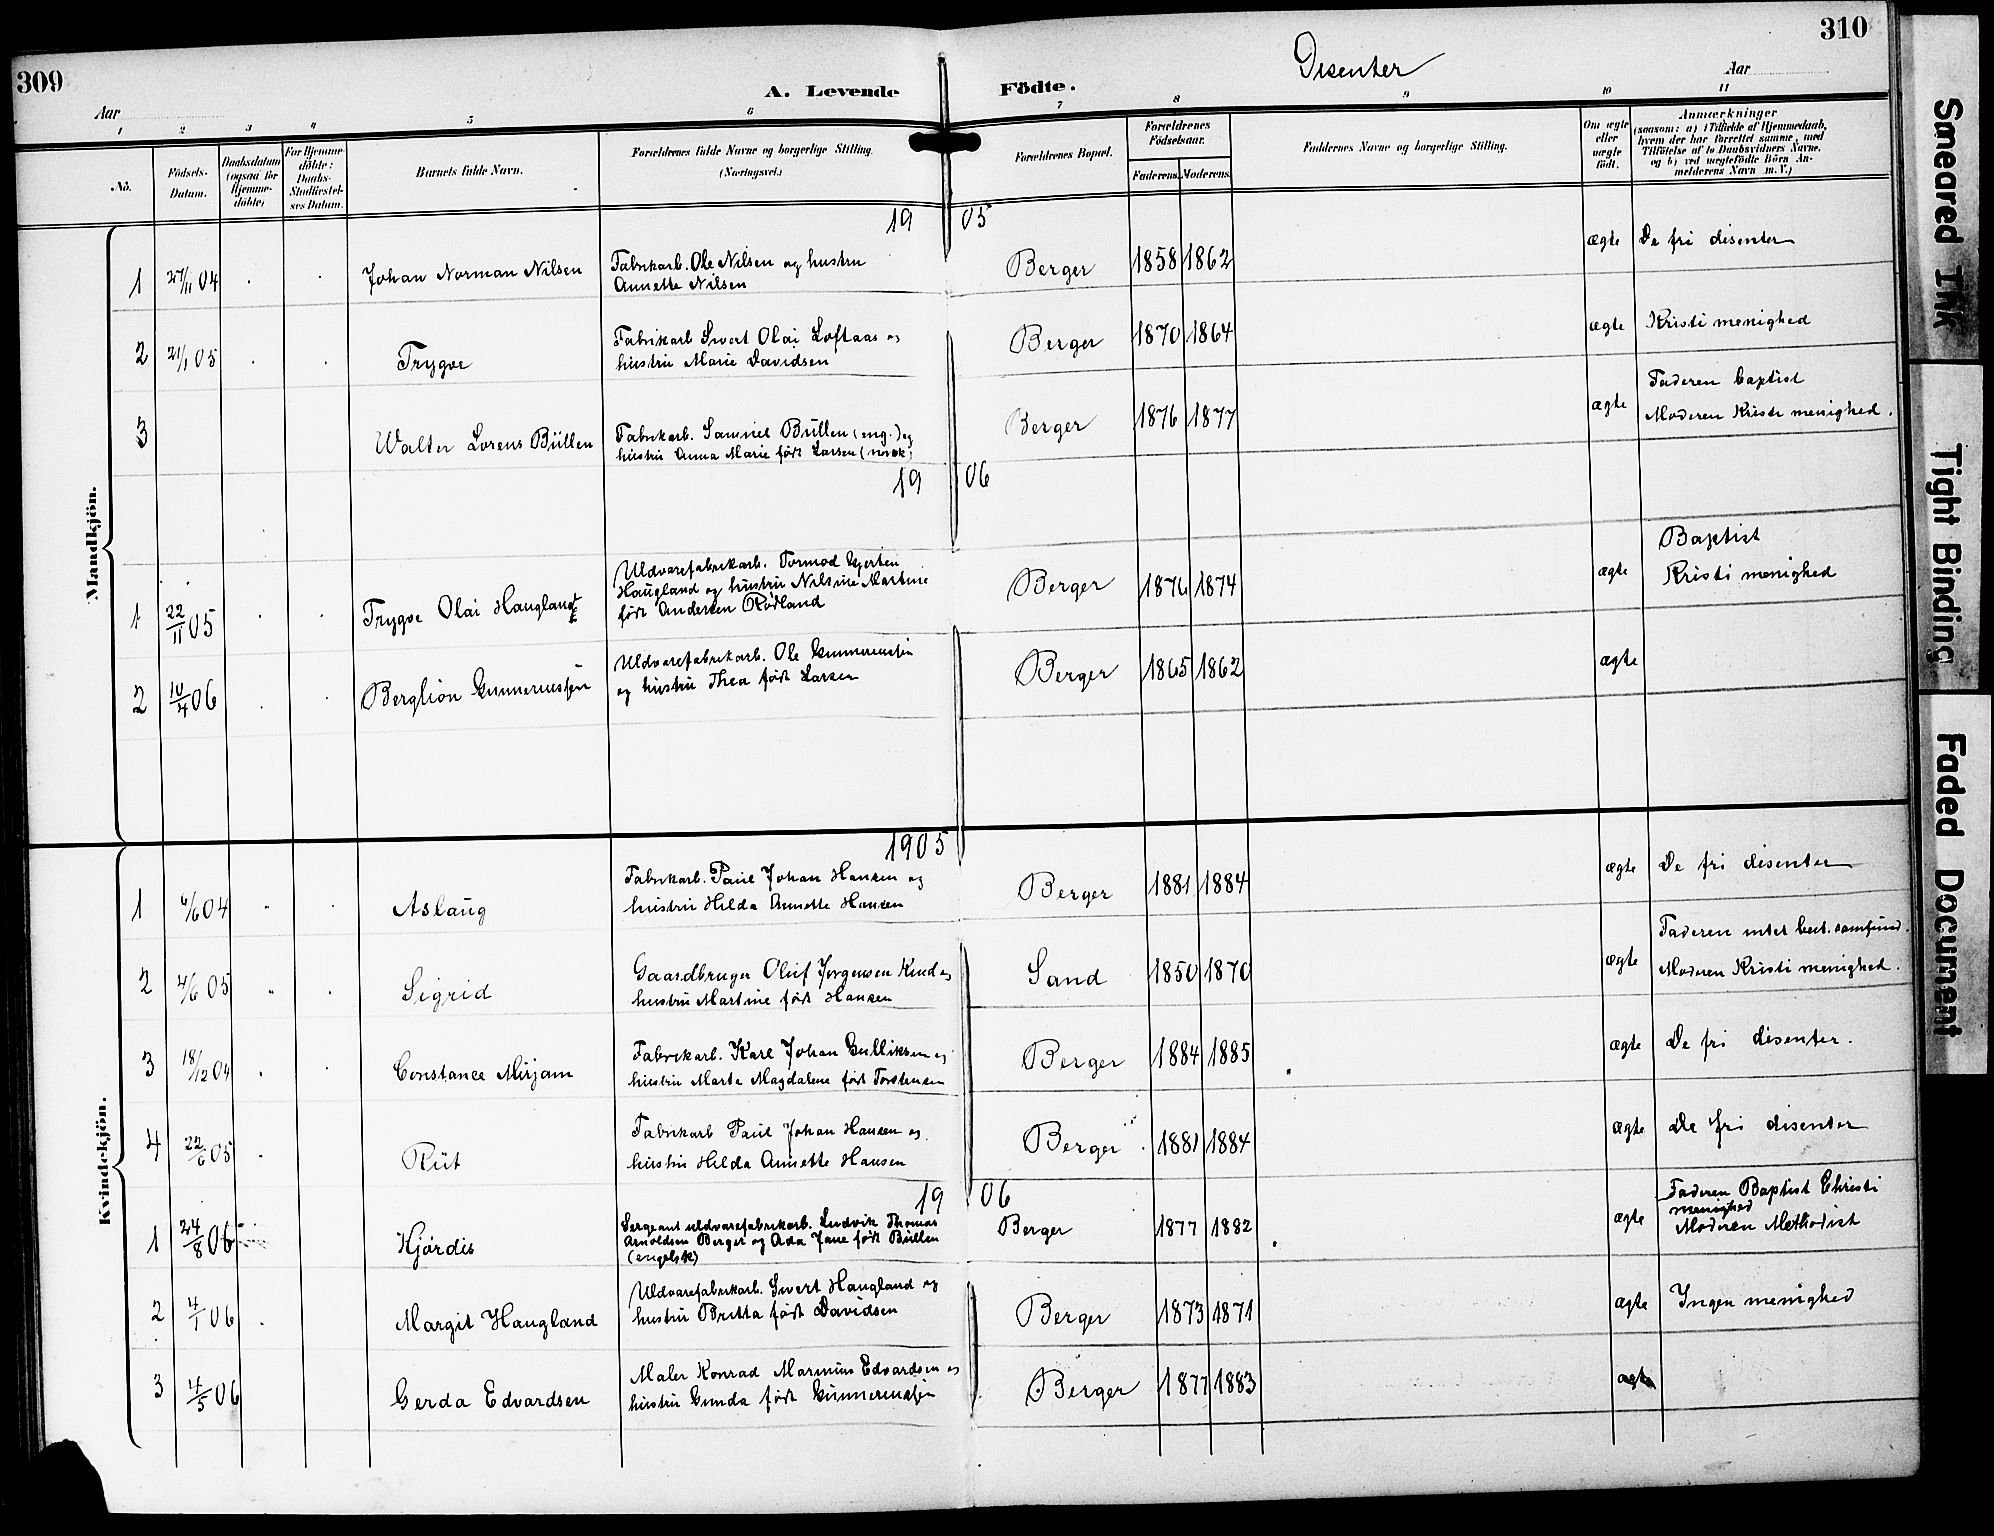 309
310
Disenter
A. Levende Födte.
Aar
Aar
1 2 3 4 5 6 7 8 9 10 11
No.
Födsels-
Datum.
Daabsdatum
(ogsaa for
Hjemme-
döbte)
For Hjemme-
döbte:
Daabs-
Stadfæstel-
ses Datum.
Barnets fulde Navn.
Forældrenes fulde Navne og borgerlige Stilling.
(Næringsvei.)
Forældrenes Bopæl.
Forældrenes
Födselsaar.
Faderens. Moderens.
Faddernes Navne og borgerlige Stilling.
Om ægte
eller
uægte
født.
Anmærkninger
(saasom: a) i Tilfælde af Hjemmedaab,
hvem der har forrettet samme, med
Tilföielse af to Daabsvidners Navne,
og b) ved uægtefödte Börn An-
melderens Navn m. V.)
Mandkjön.
1905
1 27/11 04 Johan Norman Nilsen
Fabrikarb. Ole Nilsen og hustru
Annette Nilsen
Berger 1858 1862 ægte De fri disenter
2 21/1 05 Trygve
Fabrikarb Sivert Olai Loftaas og
hustru Marie Davidsen
Berger 1870 1864 ægte Kristi menighed
3 Walter Lorens Büllen
Fabrikarb. Samuel Büllen (eng.) og
hustru Anna Marie født Larsen (norsk)
Berger 1876 1877 ægte
Faderen baptist
Moderen Kristi menighed.
1906
1 22/11 05 Trygve Olai Haugland
Uldvarefabrikarb. Tormod Gjertsen
Haugland og hustru Nilsine Martine
født Andersen Rødland
Berger 1876 1874 ægte
Baptist
Kristi menighed
2 10/4 06 Berglion Gunneriussen
Uldvarefabrikarb. Ole Gunneriussen
og hustru Thea født Larsen
Berger 1865 1862 ægte
Kvindekjön.
1905
1 6/6 04 Aslaug
Fabrikarb. Paul Johan Hansen og
hustru Hilda Annette Hansen
Berger 1881 1884 ægte De fri disenter
2 4/6 05 Sigrid
Gaardbruger Oluf Jørgensen Rud og
hustru Martine født Hansen
Sand 1850 1870 ægte
Faderen intet best. samfund.
Moderen Kristi menighed.
3 18/12 04 Constance Mirjam
Fabrikarb. Karl Johan Gulliksen og
hustru Marta Magdalene født Torstensen
Berger 1884 1885 ægte De fri disenter.
4 22/6 05 Rut
Fabrikarb Paul Johan Hansen og
hustru Hilda Annette Hansen
Berger 1881 1884 ægte De fri disenter
1906
1 24/8 06 Hjørdis
Sergeant uldvarefabrikarb. Ludvik Thomas
Arnoldsen Berger og Ada Jane født Büllen
(engelsk)
Berger 1877 1882 ægte
Faderen Baptist Christi
menighed
Moderen Methodist
2 4/1 06 Margit Haugland
Uldvarefabrikarb. Sivert Haugland og
hustru Britta født Davidsen
Berger 1873 1871 ægte Ingen menighed
3 4/5 06 Gerda Edvardsen
Maler Konrad Marinius Edvardsen og
hustru Gunda født Gunneriussen
Berger 1877 1883 ægte
Smeared Ink
Tight Binding
Faded Document